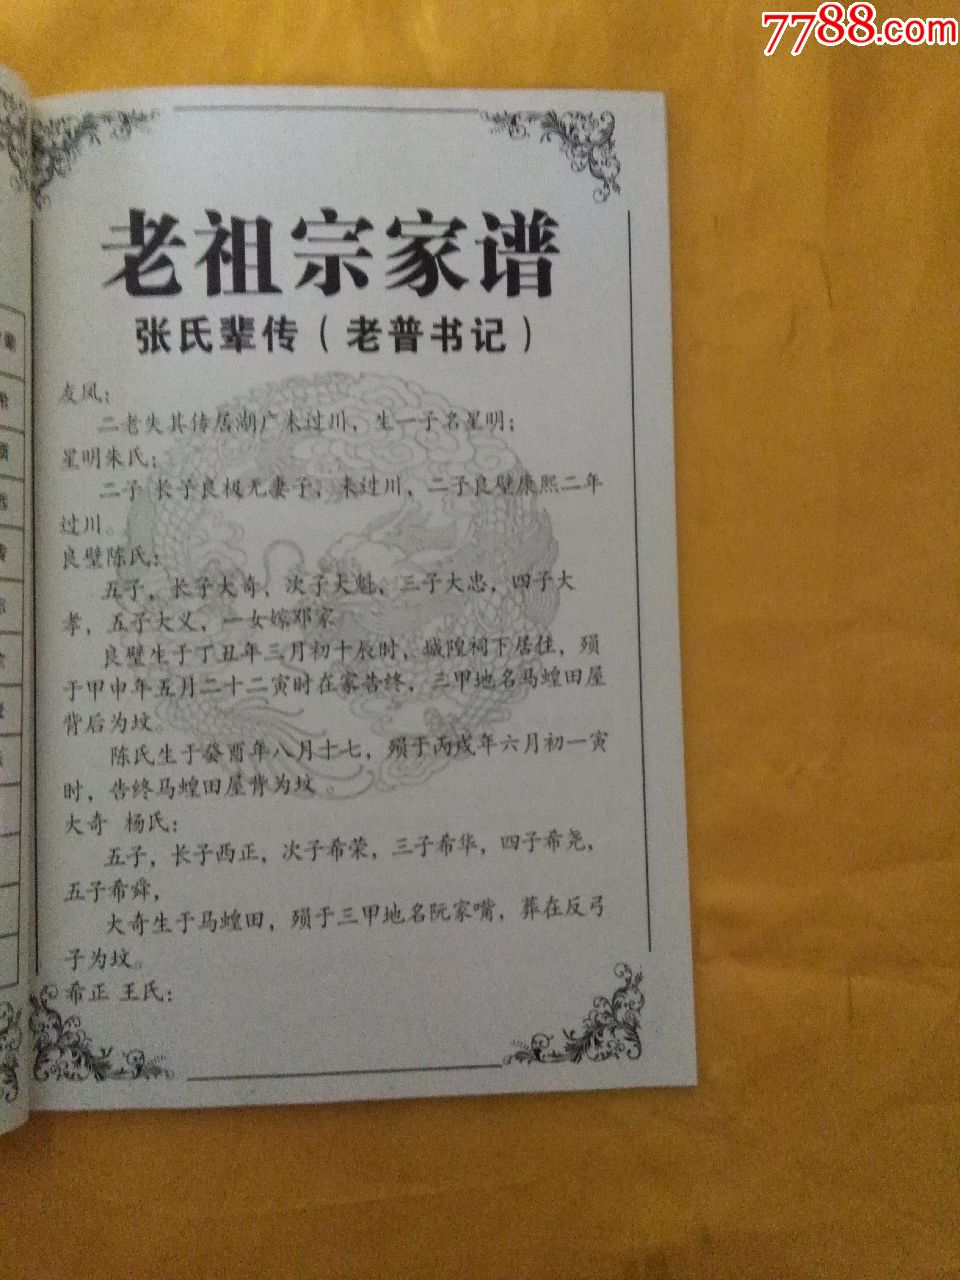 7788.com
老祖宗家谱
张氏辈传（老普书记）
友凤：
二老失其传居湖广未过川，生一子名星明；
星明朱氏：
二子 长子良极无妻子，未过川，二子良壁康熙二年
过川。
良壁陈氏：
五子，长子大奇，次子大魁，三子大忠，四子大
孝，五子大义，一女嫁邓家
良壁生于丁丑年三月初十辰时，城隍祠下居住，殒
于甲申年五月二十二寅时在家告终，三甲地名马蝗田屋
背后为坟。
陈氏生于癸酉年八月十七，殒于丙戌年六月初一寅
时，告终马蝗田屋背为坟。
大奇 杨氏：
五子，长子西正，次子希荣，三子希华，四子希尧，
五子希舜，
大奇生于马蝗田，殒于三甲地名阮家嘴，葬在反弓
子为坟。
希正 王氏：